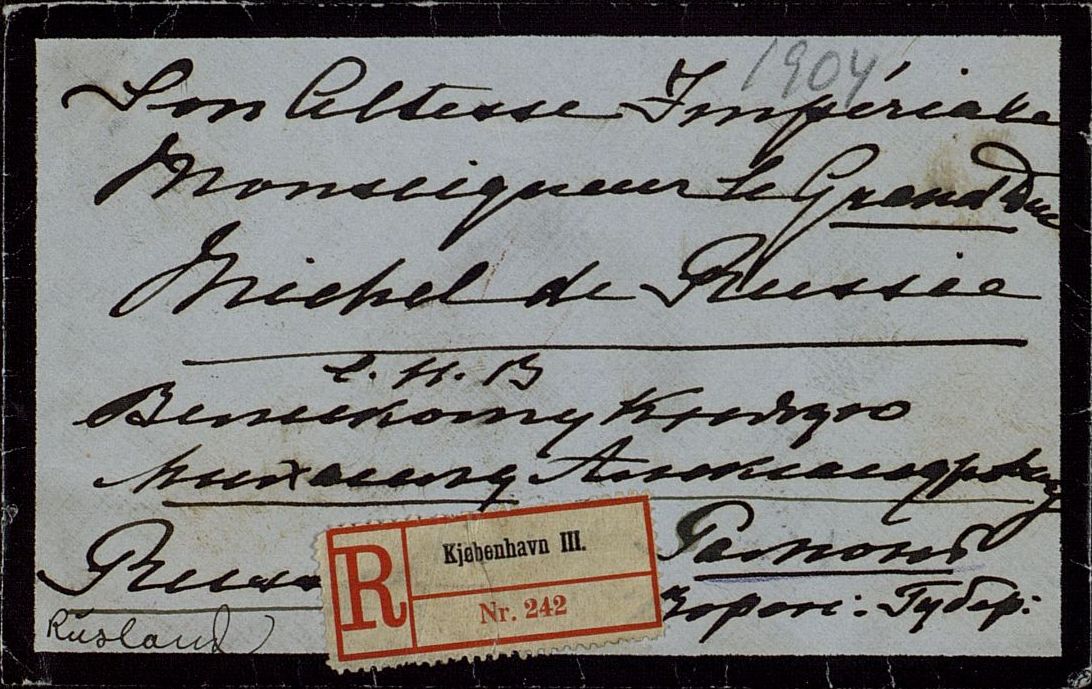 1904
Son Altesse Impériale
Monseigneur le Grand Duc
Michel de Russie
Е. И. В
Великому Князю
Михаилу Александровичу
Russ
Рамонь
Rusland
R
Kjøbenhavn III.
Nr. 242
Губер: